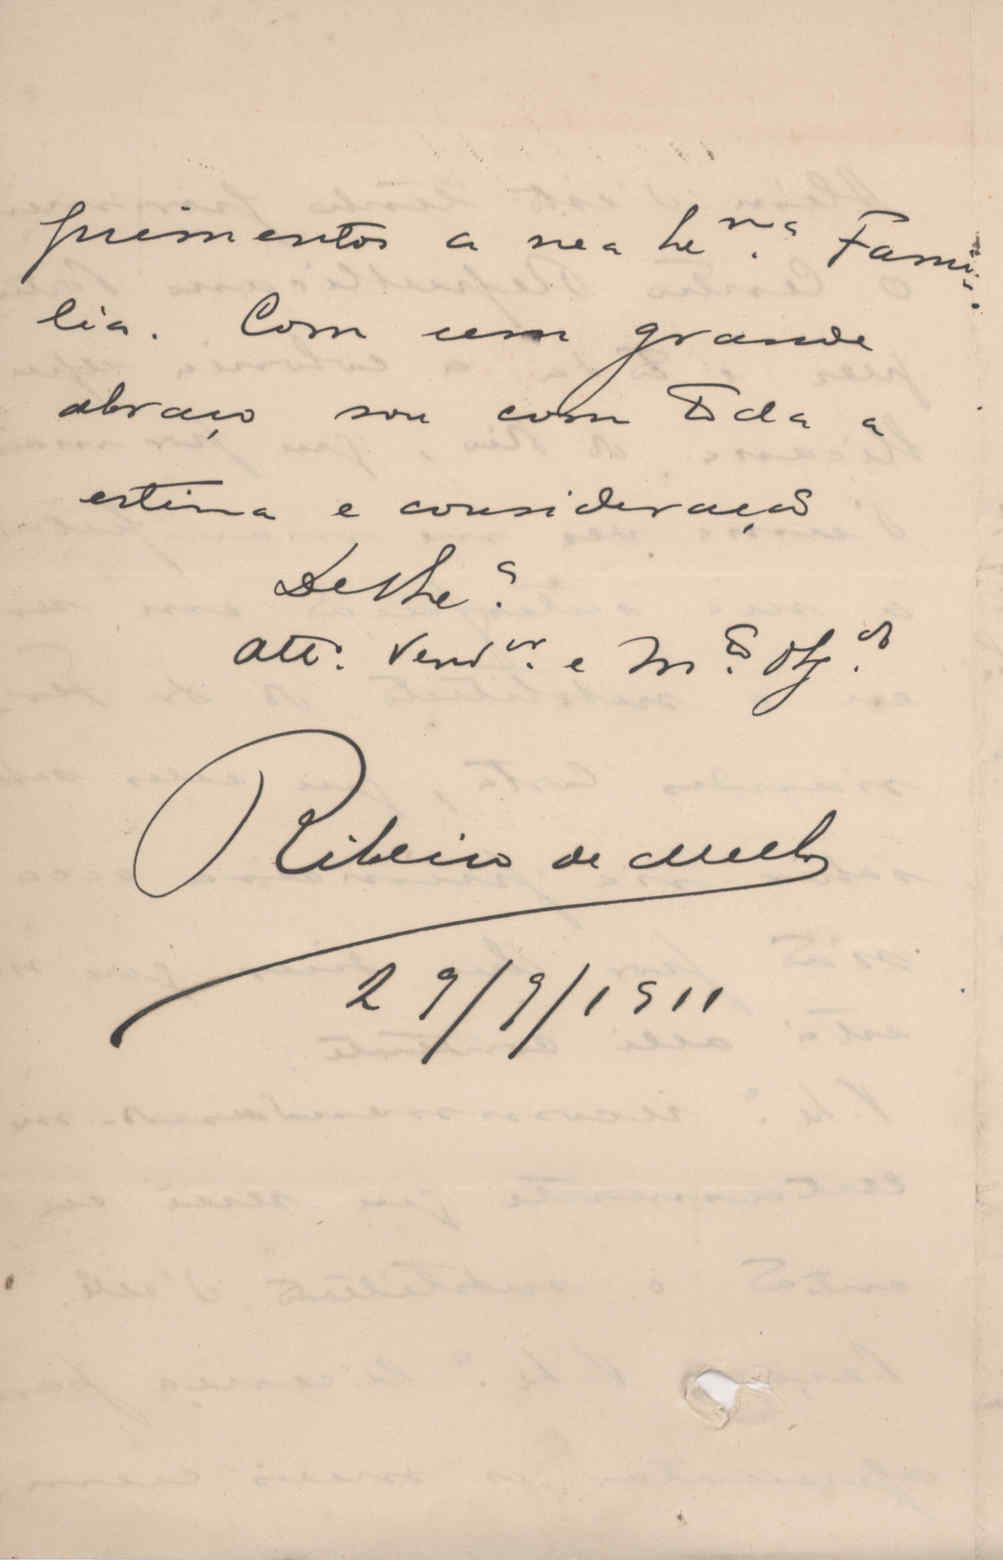 primentos a sua Ex.ma Fami-
lia. Com um grande
abraço sou com toda a
estima e consideração
De V. Ex.a
att.o Vend.or e M.to Obg.do
Ribeiro de Mello
29/9/1911